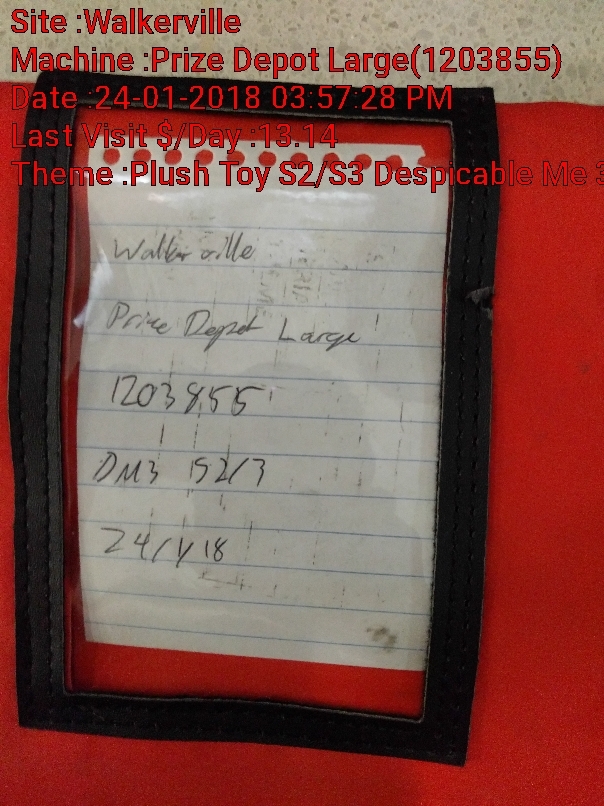 Site :Walkerville
Machine :Prize Depot Large(1203855)
Date :24-01-2018 03:57:28 PM
Last Visit $/Day :13.14
Theme :Plush Toy S2/S3 Despicable Me 3
Walkerville
Prize Depot Large
1203855
DM3 S2/3
24/1/18